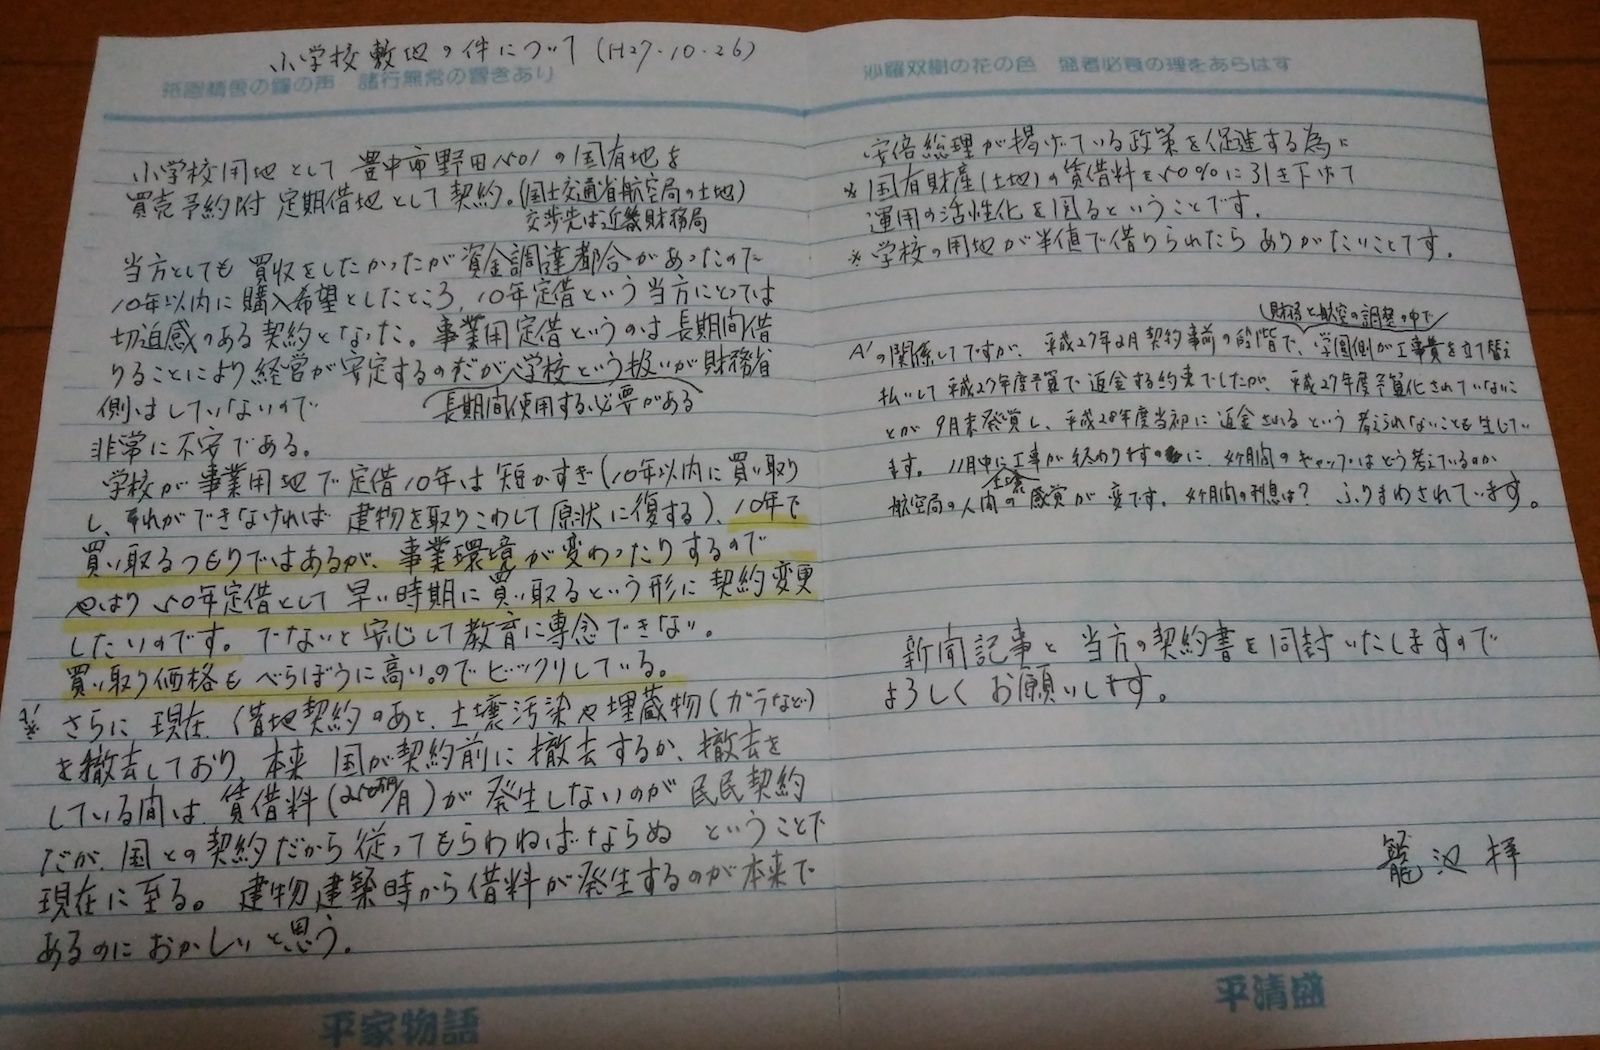 小学校敷地の件について(H27・10・26)
祇園精舎の鐘の声 諸行無常の響きあり
小学校用地として豊中市野田501の国有地を
買売予約付定期借地として契約。(国土交通省航空局の土地)
交渉先は近畿財務局
当方としても買収をしたかったが資金調達都合があったので
10年以内に購入希望としたところ、10年定借という当方にとっては
切迫感のある契約となった。事業用定借というのは長期間借
りることにより経営が安定するのだが、学校という扱いが財務省
側はしていないので
(長期間使用する必要がある
非常に不安である。
学校が事業用地で定借10年は短かすぎ(10年以内に買い取り
し、それができなければ建物を取りこわして原状に復する)、10年で
買い取るつもりではあるが、事業環境が変わったりするので
やはり50年定借として早い時期に買い取るという形に契約変更
したいのです。でないと安心して教育に専念できない。
買い取り価格もべらぼうに高いのでビックリしている。
※A' さらに現在、借地契約のあと、土壌汚染や埋蔵物(ガラなど)
を撤去しており、本来国が契約前に撤去するか、撤去を
している間は賃借料(250万円/月)が発生しないのが民民契約
だが、国との契約だから従ってもらわねばならぬということで
現在に至る。建物建築時から借料が発生するのが本来で
あるのにおかしいと思う。
平家物語
沙羅双樹の花の色 盛者必衰の理をあらはす
安倍総理が掲げている政策を促進する為に
※国有財産(土地)の賃借料を50%に引き下げて
運用の活性化を図るということです。
※学校の用地が半値で借りられたらありがたいことです。
(財務と航空の調整の中で
A'の関係してですが、平成27年2月契約事前の段階で、学園側が工事費を立て替え
払いして平成27年度予算で返金する約束でしたが、平成27年度予算化されていないこ
とが9月末発覚し、平成28年度当初に返金されるという考えられないことも生じてい
ます。11月中に工事が終わりますのに、4ヶ月間のギャップはどう考えているのか
航空局の人間の感覚が変です。4ヶ月間の利息は? ふりまわされています。
新聞記事と当方の契約書を同封いたしますので
よろしくお願いします。
籠池 拝
平清盛